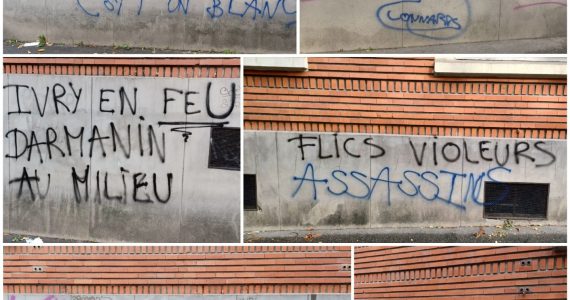 CONNARDS
IVRY EN FEU
DARMANIN
AU MILIEU
FLICS VIOLEURS
ASSASSINS